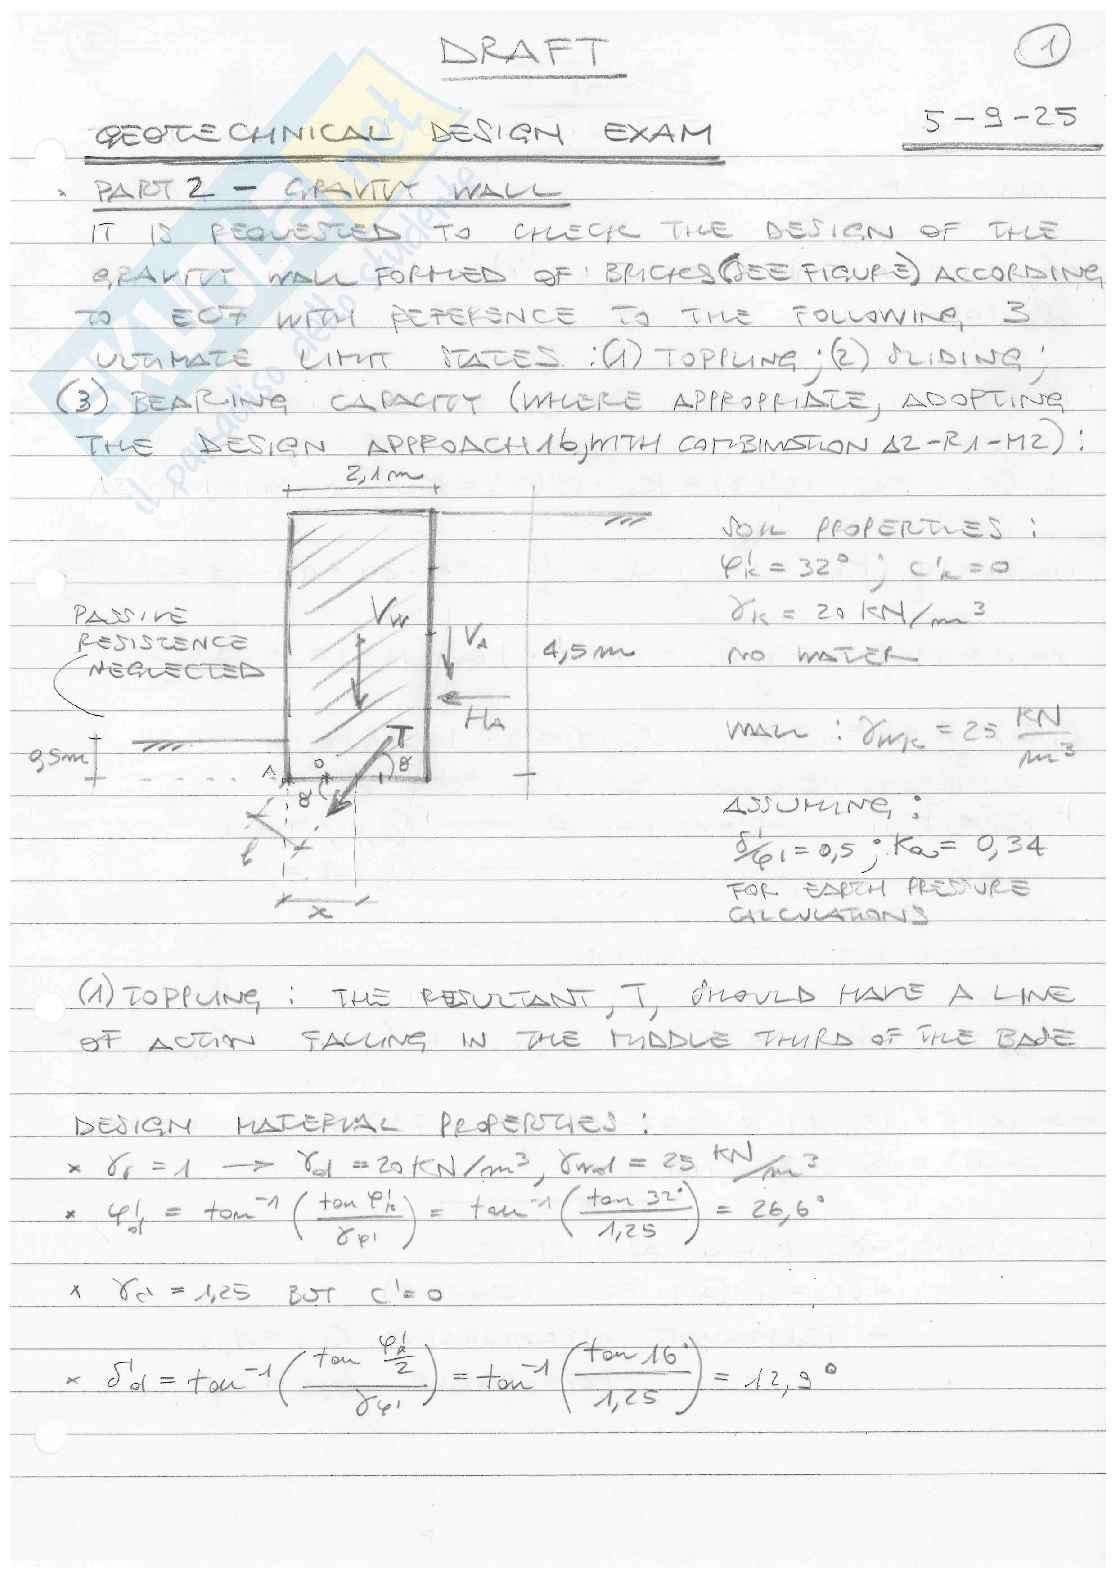 DRAFT
1
GEOTECHNICAL DESIGN EXAM
5-9-25
PART 2 - GRAVITY WALL
IT IS REQUESTED TO CHECK THE DESIGN OF THE
GRAVITY WALL FORMED OF BRICKS (SEE FIGURE) ACCORDING
TO EC7 WITH REFERENCE TO THE FOLLOWING 3
ULTIMATE LIMIT STATES: (1) TOPPLING; (2) SLIDING;
(3) BEARING CAPACITY (WHERE APPROPRIATE, ADOPTING
THE DESIGN APPROACH 1b, WITH COMBINATION A2-R1-M2):
2,1m
SOIL PROPERTIES:
φ'k = 32° ; c'k = 0
γk = 20 KN/m³
NO WATER
PASSIVE
RESISTENCE
NEGLECTED
Vw
VA
4,5m
HA
WALL: γwk = 25 KN/m³
T
0,5m
A
O
γ
γ
b
x
ASSUMING:
δ'/φ' = 0,5 ; Ka = 0,34
FOR EARTH PRESSURE
CALCULATIONS
(1) TOPPLING: THE RESULTANT, T, SHOULD HAVE A LINE
OF ACTION FALLING IN THE MIDDLE THIRD OF THE BASE
DESIGN MATERIAL PROPERTIES:
× γγ = 1 → γd = 20 KN/m³, γwd = 25 KN/m³
× φ'd = tan⁻¹ (tan φ'k / γφ') = tan⁻¹ (tan 32° / 1,25) = 26,6°
× γc' = 1,25 BUT c' = 0
× δ'd = tan⁻¹ (tan φ'k/2 / γφ') = tan⁻¹ (tan 16° / 1,25) = 12,9°
SKUOLA.net
il paradiso dello studente